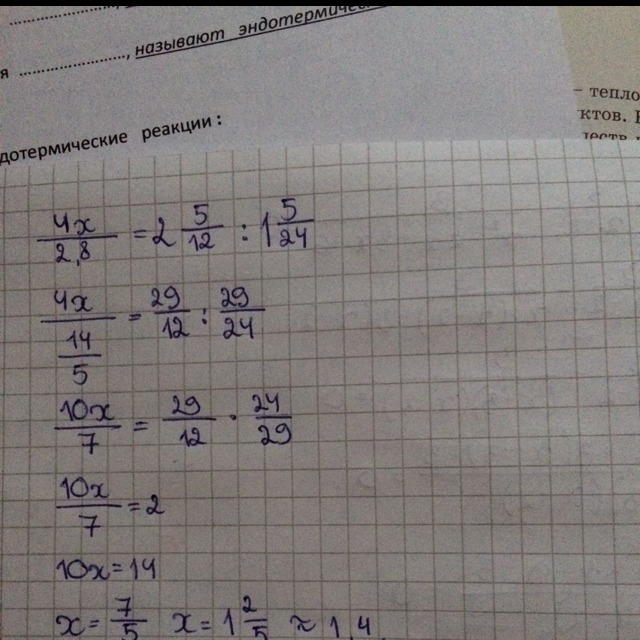 называют эндотермичес
я
– тепло
ктов.
дотермические реакции:
4x/2,8 = 2 5/12 : 1 5/24
4x/(14/5) = 29/12 : 29/24
10x/7 = 29/12 · 24/29
10x/7 = 2
10x = 14
x = 7/5 x = 1 2/5 ≈ 1,4